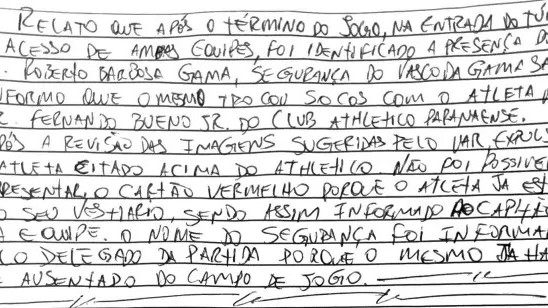 RELATO QUE APÓS O TÉRMINO DO JOGO, NA ENTRADA DO TÚ
ACESSO DE AMBAS EQUIPES, FOI IDENTIFICADO A PRESENÇA D
. ROBERTO BARBOSA GAMA, SEGURANÇA DO VASCO DA GAMA SA
NFORMO QUE O MESMO TROCOU SOCOS COM O ATLETA
R. FERNANDO BUENO JR. DO CLUB ATHLETICO PARANAENSE.
PÓS A REVISÃO DAS IMAGENS SUGERIDAS PELO VAR, EXPULS
ATLETA CITADO ACIMA DO ATHLETICO. NÃO FOI POSSIVE
PRESENTAR O CARTÃO VERMELHO PORQUE O ATLETA JA EST
O SEU VESTIARIO, SENDO ASSIM INFORMADO AO CAPITÃ
A EQUIPE. O NOME DO SEGURANÇA FOI INFORMA
LO DELEGADO DA PARTIDA PORQUE O MESMO JÁ HA
E AUSENTADO DO CAMPO DE JOGO.